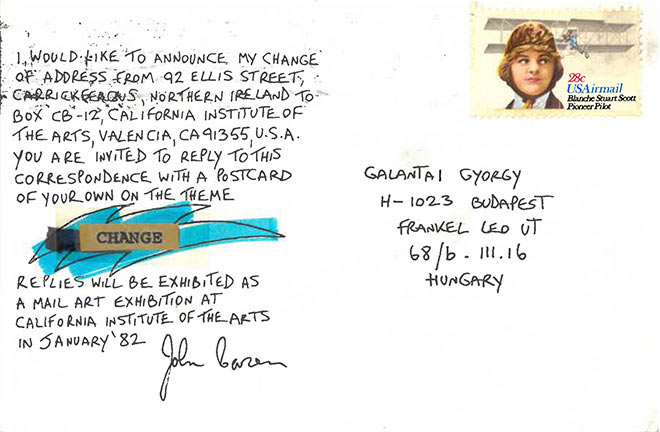 I WOULD LIKE TO ANNOUNCE MY CHANGE
OF ADDRESS FROM 92 ELLIS STREET,
CARRICKFERGUS, NORTHERN IRELAND TO
BOX CB-12, CALIFORNIA INSTITUTE OF
THE ARTS, VALENCIA, CA 91355, U.S.A.
YOU ARE INVITED TO REPLY TO THIS
CORRESPONDENCE WITH A POSTCARD
OF YOUR OWN ON THE THEME
CHANGE
REPLIES WILL BE EXHIBITED AS
A MAIL ART EXHIBITION AT
CALIFORNIA INSTITUTE OF THE ARTS
IN JANUARY '82
John
28c
USAirmail
Blanche Stuart Scott
Pioneer Pilot
GALANTAI GYORGY
H-1023 BUDAPEST
FRANKEL LEO UT
68/b. III.16
HUNGARY